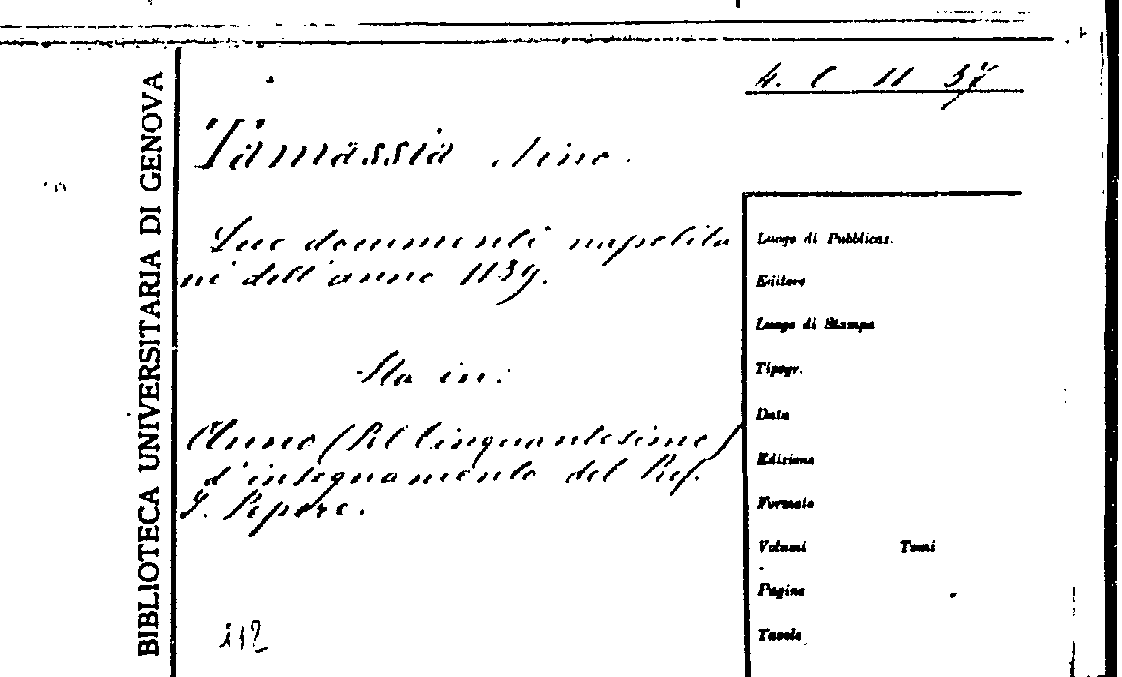 BIBLIOTECA UNIVERSITARIA DI GENOVA
4. C 11 37
Tamassia Nino.
Due documenti napolita
ni dell'anno 1139.
Sta in:
Anno (Pel Cinquantesimo)
d'insegnamento del Prof.
F. Pepere.
Luogo di Pubblicaz.
Editore
Luogo di Stampa
Tipogr.
Data
Edizione
Formato
Volumi Tomi
Pagine
Tavole